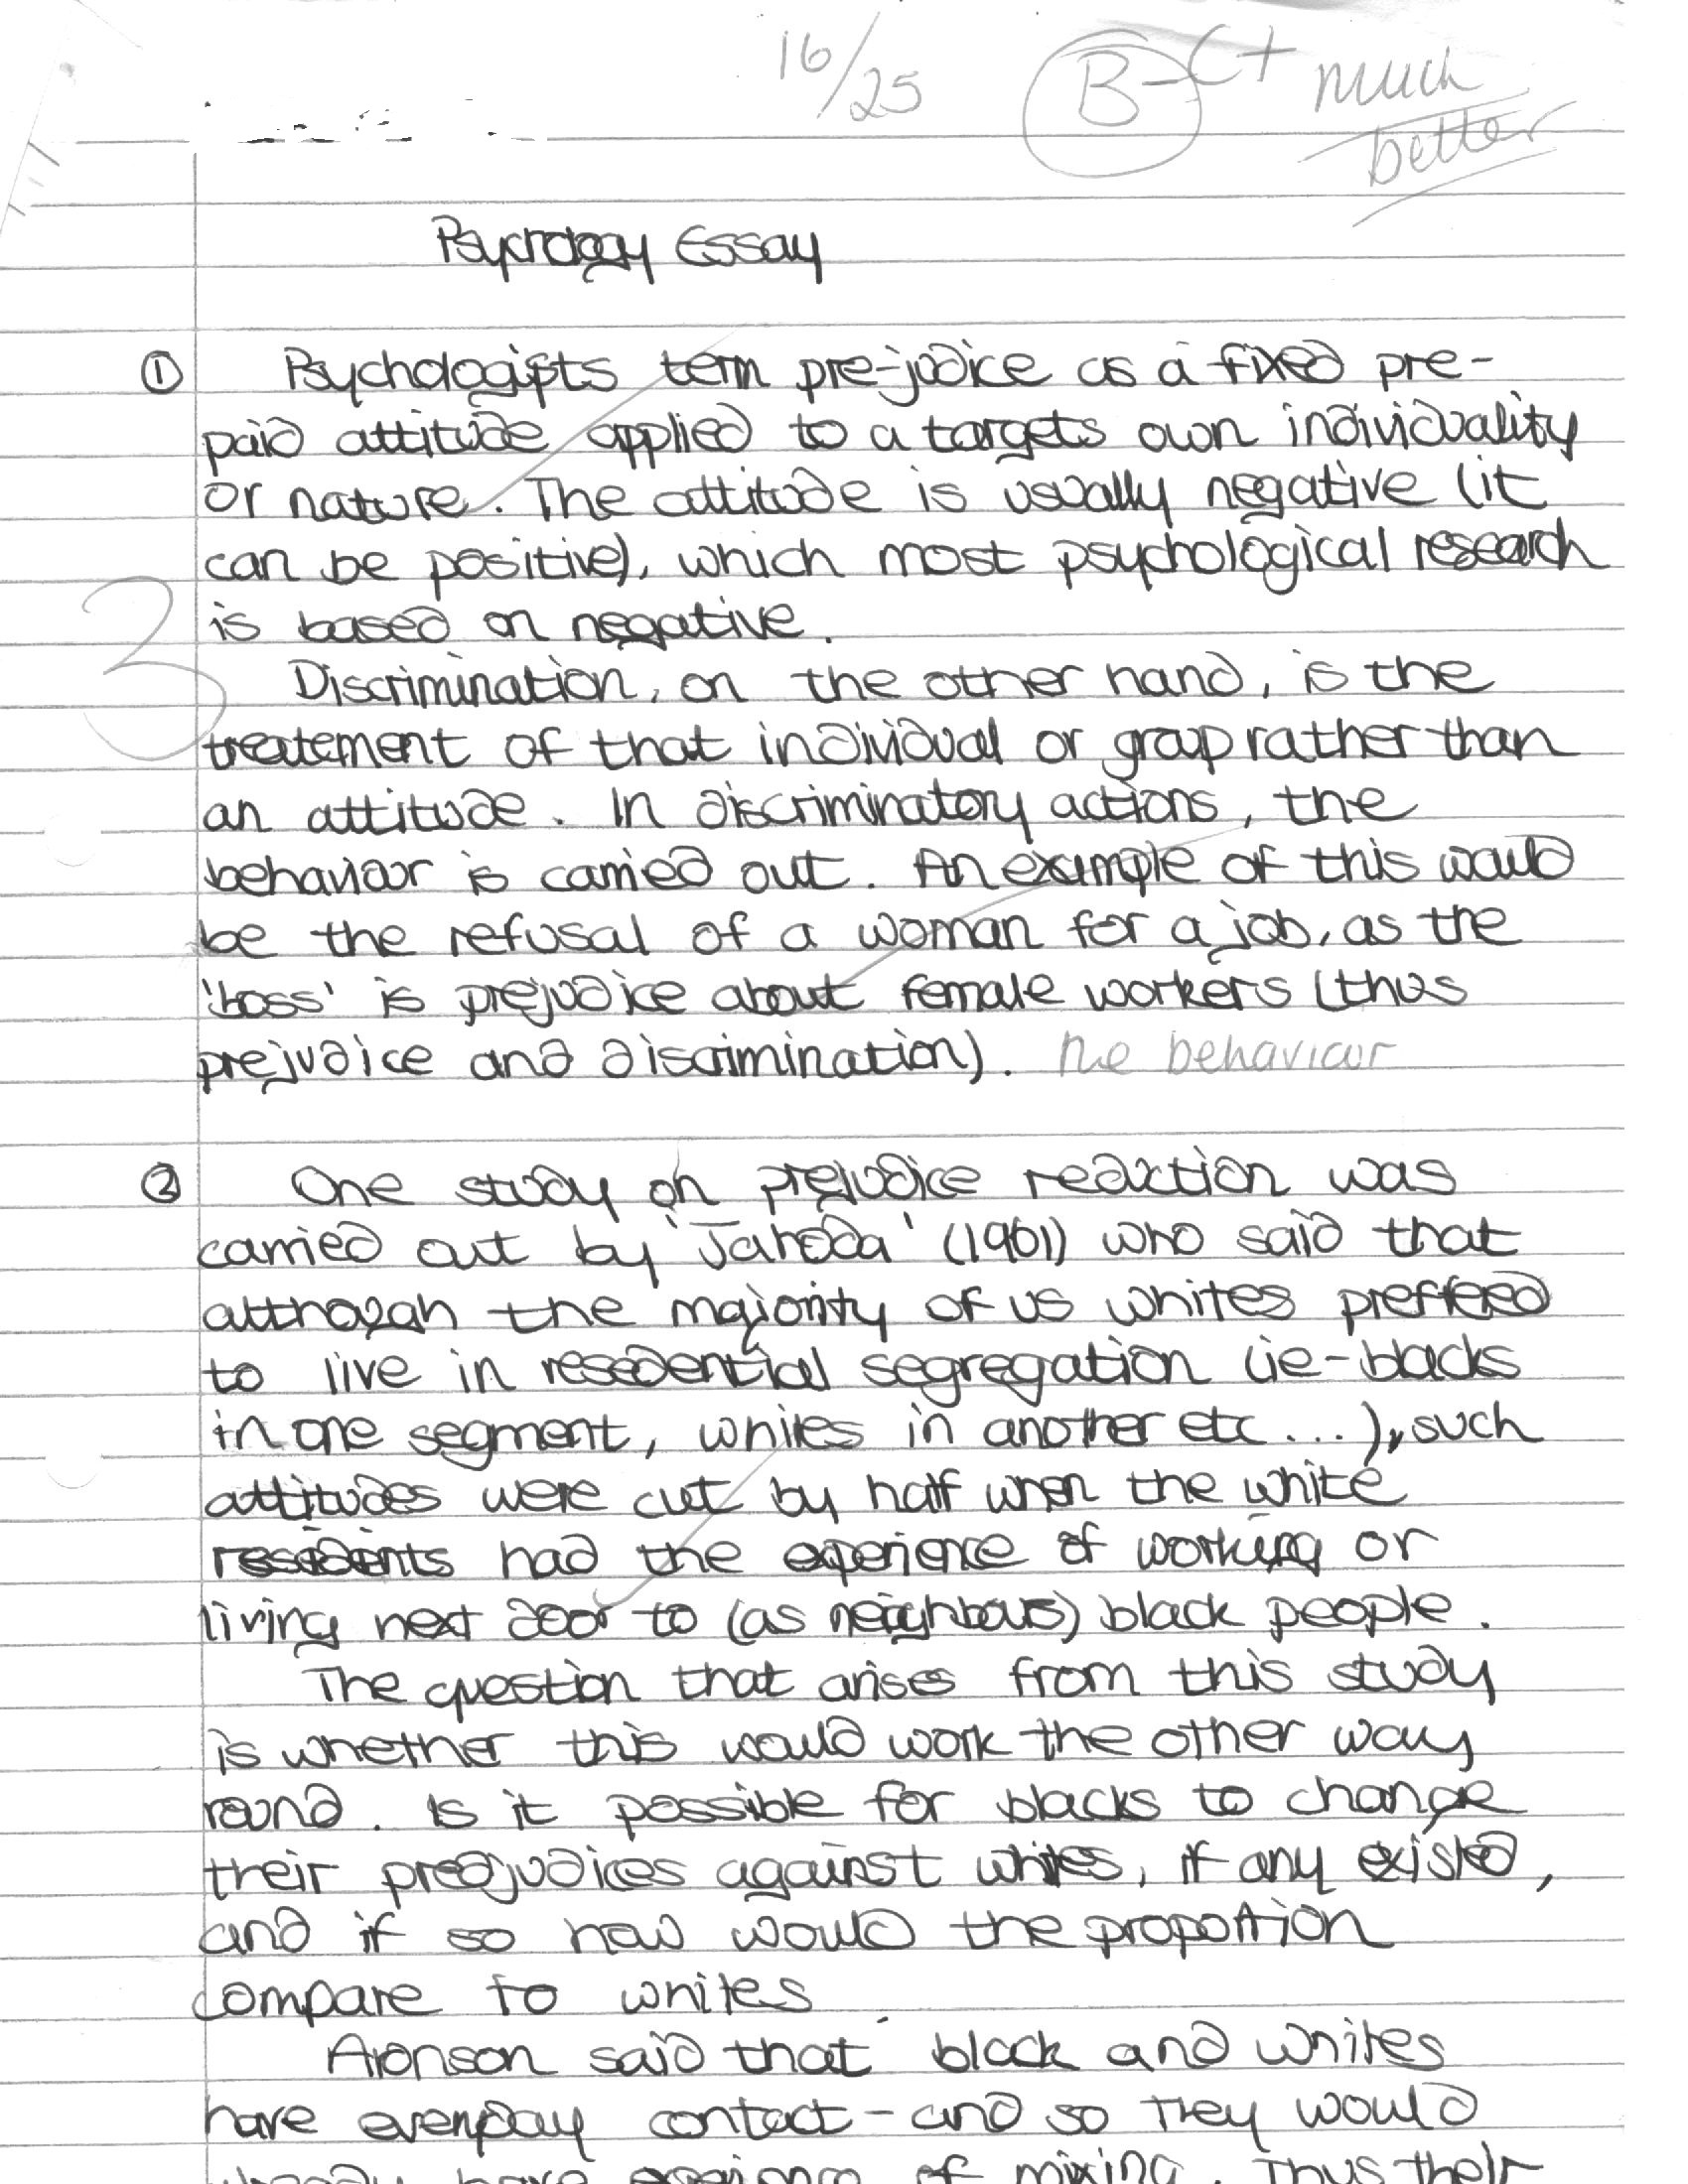 16/25 B- C+ much
better
Psychology Essay
① Psychologists term pre-judice as a fixed pre-
paid attitude applied to a targets own individuality
or nature. The attitude is usually negative (it
can be positive), which most psychological research
is based on negative.
3
Discrimination, on the other hand, is the
treatement of that individual or group rather than
an attitude. In discriminatory actions, the
behaviour is carried out. An example of this would
be the refusal of a woman for a job, as the
'boss' is prejudice about female workers (thus
prejudice and discrimination). the behaviour
② One study on prejudice reduction was
carried out by 'Jahoda' (1961) who said that
although the majority of us whites preffered
to live in resedential segregation (ie-blacks
in one segment, whites in another etc...), such
attitudes were cut by half when the white
residents had the experience of working or
living next door to (as neighbours) black people.
The question that arises from this study
is whether this would work the other way
round. Is it possible for blacks to change
their predjudices against whites, if any existed,
and if so how would the proportion
compare to whites
Aronson said that black and whites
have everyday contact - and so they would
already have experience of mixing. Thus their